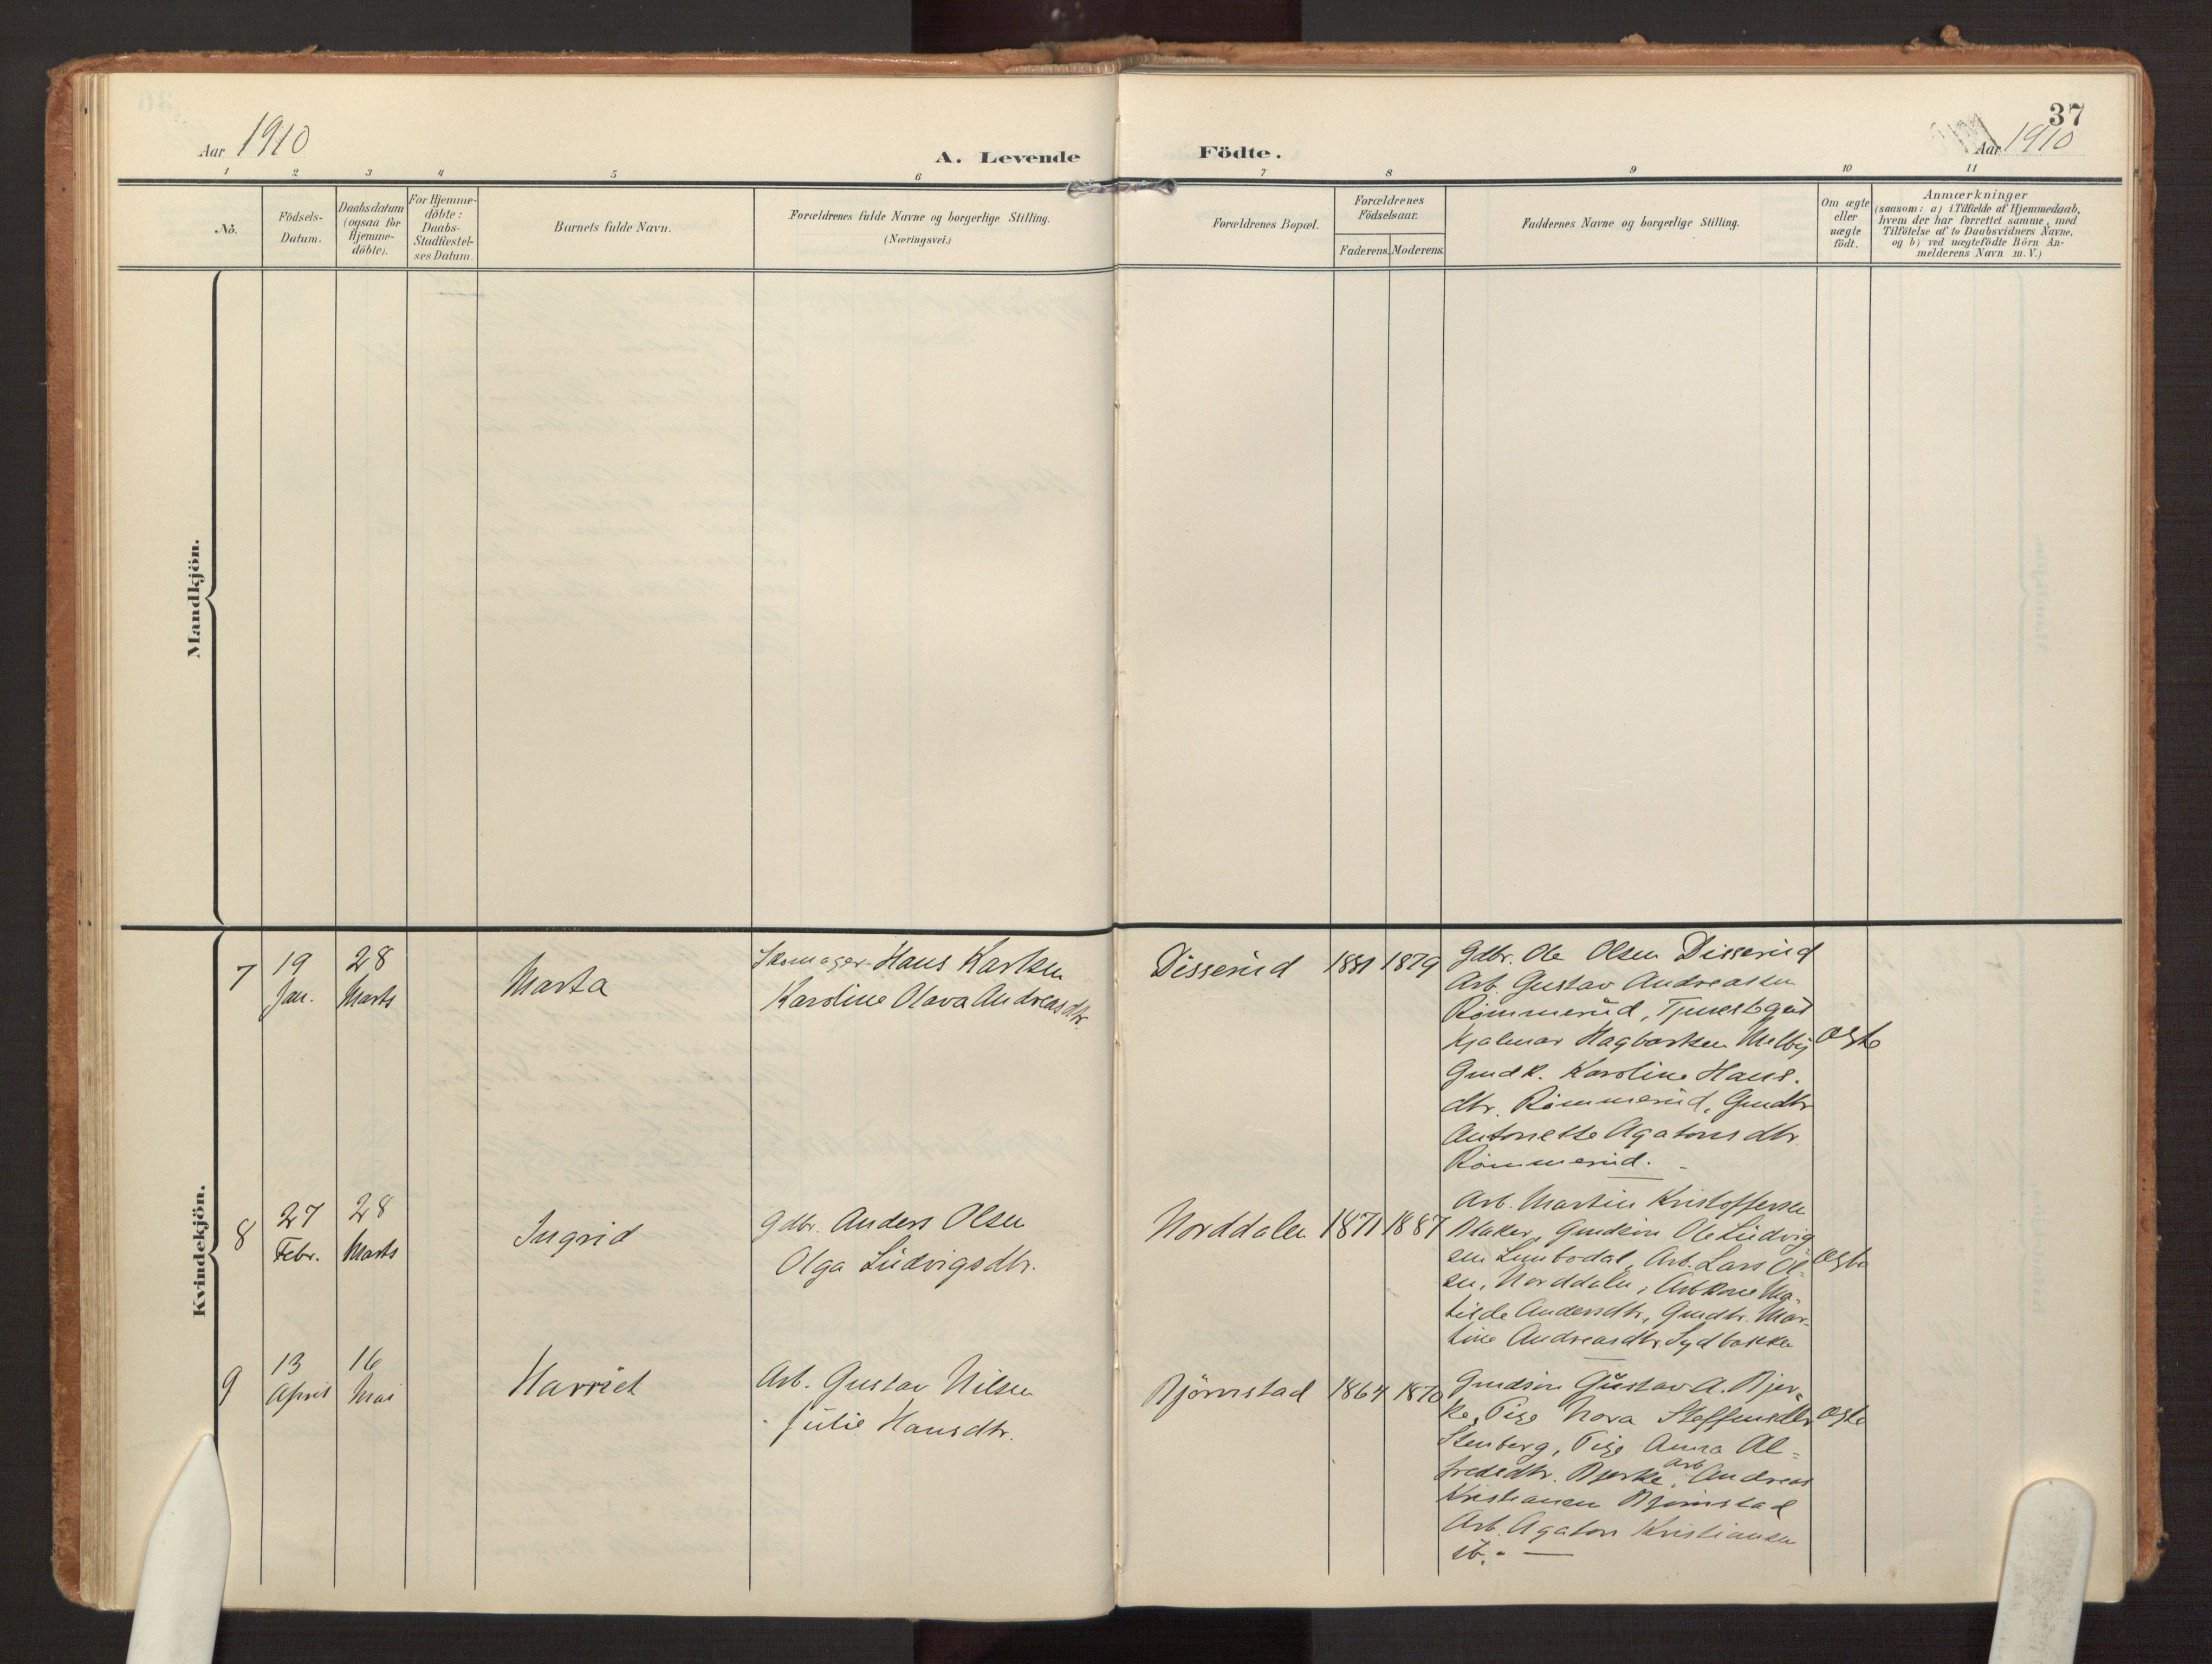 37
Aar 1910
A. Levende Födte.
Aar 1910
1 2 3 4 5 6 7 8 9 10 11
No.
Födsels-
Datum.
Daabsdatum
(ogsaa for
Hjemme-
döbte).
For Hjemme-
döbte:
Daabs-
Stadfæstel-
ses Datum.
Barnets fulde Navn.
Forældrenes fulde Navne og borgerlige Stilling.
(Næringsvei.)
Forældrenes Bopæl.
Forældrenes
Födselsaar.
Faderens. Moderens.
Faddernes Navne og borgerlige Stilling.
Om ægte
eller
uægte
födt.
Anmærkninger
(saasom: a) i Tilfælde af Hjemmedaab,
hvem der har forrettet samme, med
Tilföielse af to Daabsvidners Navne,
og b) ved uægtefödte Börn An-
melderens Navn m. V.)
Mandkjön.
Kvindekjön.
7
19
Jan.
28
Marts
Marta
Skomager Hans Karlsen
Karoline Olava Andreasdtr.
Disserud
1881
1879
Gdbr. Ole Olsen Disserud
Arb. Gustav Andreassen
Römmerud, Tjenestegut
Hjalmar Hagbartsen Melby
Gmdk. Karoline Hans-
dtr. Römmerud, Gmdtr
Antonette Agatonsdtr.
Römmerud.
Ægte
8
27
Febr.
28
Marts
Ingrid
Gdbr. Anders Olsen
Olga Ludvigsdtr.
Norddalen
1871
1887
Arb. Martin Kristoffersen
Aaker, Gmdsön Ole Ludvig
sen Lunbodal, Arb. Lars Ol-
sen, Norddalen, Arbkone Ma-
tilde Andersdtr, Gmdtr. Mar-
tine Andreasdtr. Sydbakke
Ægte
9
13
April
16
Mai
Harriet
Arb. Gustav Nilsen
Julie Hansdtr.
Björnstad
1864
1870
Gmdsön Gustav A. Bjer-
ke, Pige Nora Steffensdtr
Stenberg, Pige Anna Al-
fredsdtr. Bjerke, Arb. Andreas
Kristiansen Björnstad
Arb. Agaton Kristiansen
ib. -
Ægte